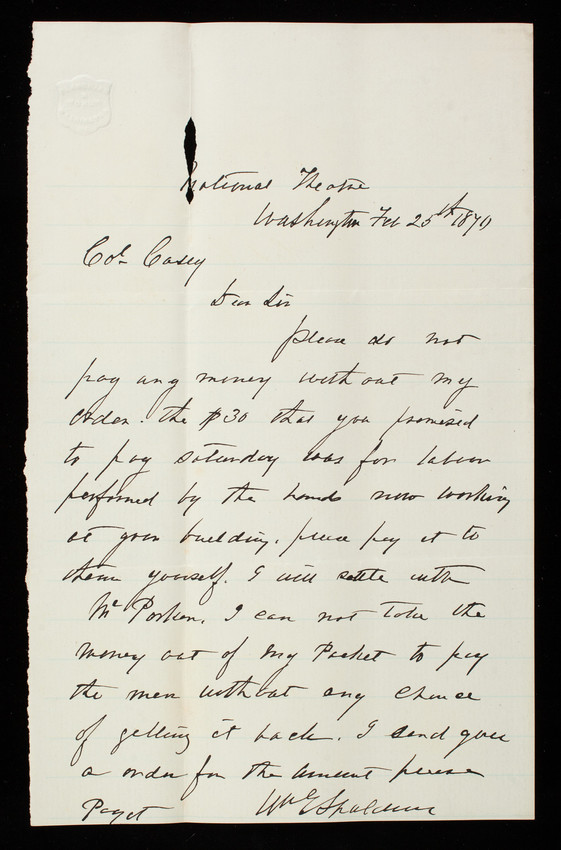 National Theatre
Washington Feb 25th 1879
Col Casey
Dear Sir
please do not
pay any money without my
order. the $30 that you promised
to pay saturday was for labour
performed by the hands now working
at your building. please pay it to
them yourself. I will settle with
Mr Parker. I can not take the
money out of my Pocket to pay
the men without any chance
of getting it back. I send you
a order for the amount please
Pay it
Wm E Spalding